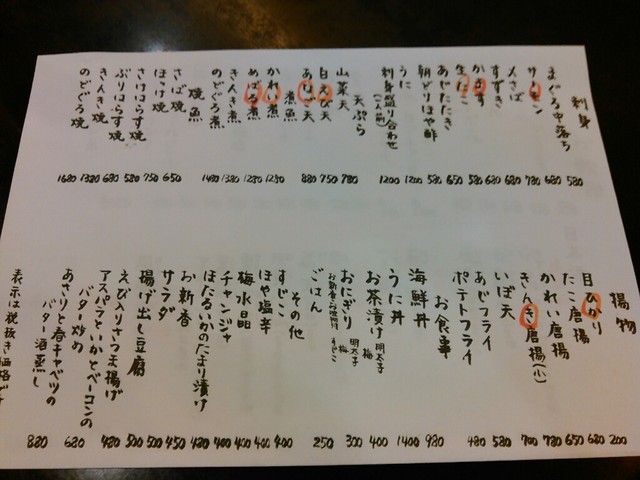 刺身
まぐろ中落ち 580
サーモン 680
〆さば 780
すずき 680
かます 680
生たこ 580
あじたたき 650
朝どりほや酢 580
うに 1200
刺身盛り合わせ 1200
(一人前)
天ぷら
山菜天 780
白えび天 750
あなご天 880
煮魚
かれい煮 1280
めばる煮 1280
きんき煮 1380
のどぐろ煮 1480
焼魚
さば焼 650
ほっけ焼 750
さけはらす焼 580
ぶりはらす焼 680
きんき焼 1380
のどぐろ焼 1680
揚物
目ひかり 200
たこ唐揚 680
かれい唐揚 650
きんき唐揚(小) 780
いぼ天 700
あじフライ 580
ポテトフライ 480
お食事
海鮮丼 980
うに丼 1400
お茶漬け 明太子 梅 400
おにぎり 明太子 梅 すじこ 300
ごはん 250
その他
すじこ 400
ほや塩辛 400
梅水晶 400
チャンジャ 400
ほたるいかのたまり漬け 480
お新香 450
サラダ 500
揚げ出し豆腐 500
えび入りさつま揚げ 480
アスパラといかとベーコンの
バター炒め 680
あさりと春キャベツの
バター酒蒸し 880
表示は税抜き価格です